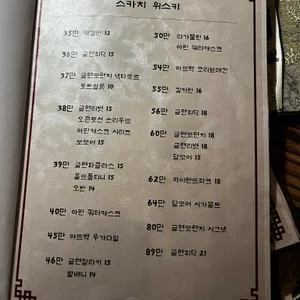 스카치 위스키
35만 맥켈란 12
36만 글렌피딕 15
37만 글렌모렌지 넥타도르
포트샬롯 10
38만 글렌리벳 15
오큰토션 쓰리우드
아란캐스크 시리즈
보모어 15
39만 글렌파클라스 15
올드풀티니 15
오반 14
40만 아란 쿼터캐스크
45만 아드벡 우가다일
46만 글렌알라키 15
발베니 14
50만 라가불린 16
아란 쉐리캐스크
54만 아드벡 코리브레칸
55만 갈리란 16
56만 글렌피딕 18
60만 글렌모렌지 18
글렌리벳 18
달모어 15
62만 하이랜드파크 18
64만 달모어 시가몰트
80만 글렌모렌지 시그넷
89만 글렌피딕 21